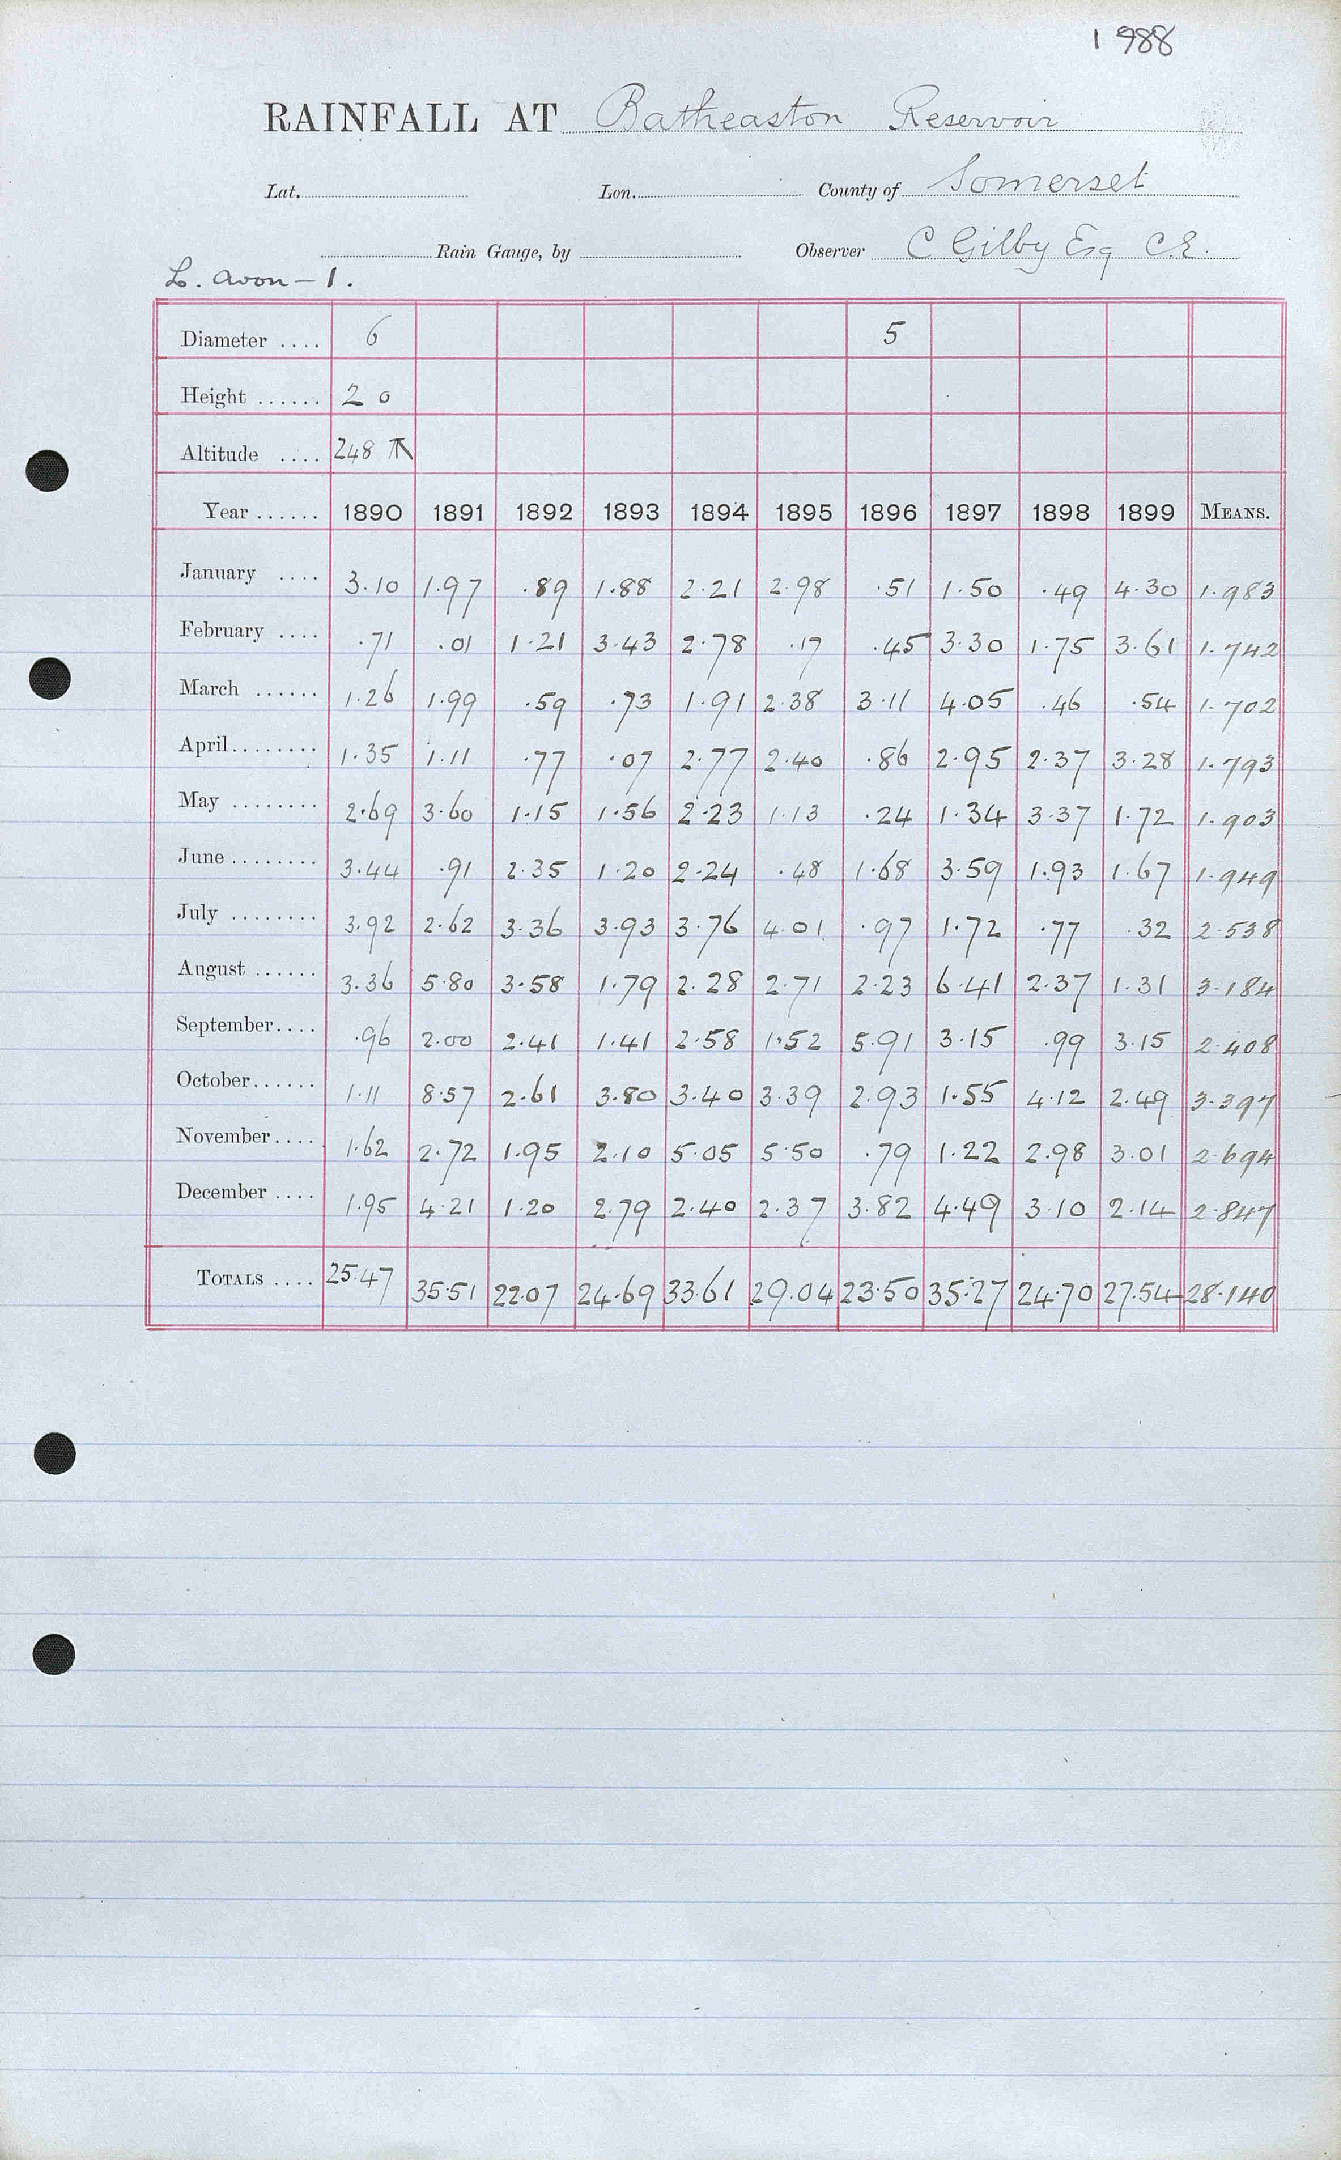 1 988
RAINFALL AT Batheaston Reservoir
Lat. Lon. County of Somerset
Rain Gauge, by Observer C Gilby Esq C.E.
L. Avon – 1.
Diameter .... 6 5
Height ...... 2 0
Altitude .... 248
Year ...... 1890 1891 1892 1893 1894 1895 1896 1897 1898 1899 MEANS.
January .... 3.10 1.97 .89 1.88 2.21 2.98 .51 1.50 .49 4.30 1.983
February .... .71 .01 1.21 3.43 2.78 .17 .45 3.30 1.75 3.61 1.742
March ...... 1.26 1.99 .59 .73 1.91 2.38 3.11 4.05 .46 .54 1.702
April........ 1.35 1.11 .77 .07 2.77 2.40 .86 2.95 2.37 3.28 1.793
May ........ 2.69 3.60 1.15 1.56 2.23 1.13 .24 1.34 3.37 1.72 1.903
June ........ 3.44 .91 2.35 1.20 2.24 .48 1.68 3.59 1.93 1.67 1.949
July ........ 3.92 2.62 3.36 3.93 3.76 4.01 .97 1.72 .77 .32 2.538
August ...... 3.36 5.80 3.58 1.79 2.28 2.71 2.23 6.41 2.37 1.31 3.184
September.... .96 2.00 2.41 1.41 2.58 1.52 5.91 3.15 .99 3.15 2.408
October...... 1.11 8.57 2.61 3.80 3.40 3.39 2.93 1.55 4.12 2.49 3.397
November.... 1.62 2.72 1.95 2.10 5.05 5.50 .79 1.22 2.98 3.01 2.694
December .... 1.95 4.21 1.20 2.79 2.40 2.37 3.82 4.49 3.10 2.14 2.847
TOTALS .... 25.47 35.51 22.07 24.69 33.61 29.04 23.50 35.27 24.70 27.54 28.140